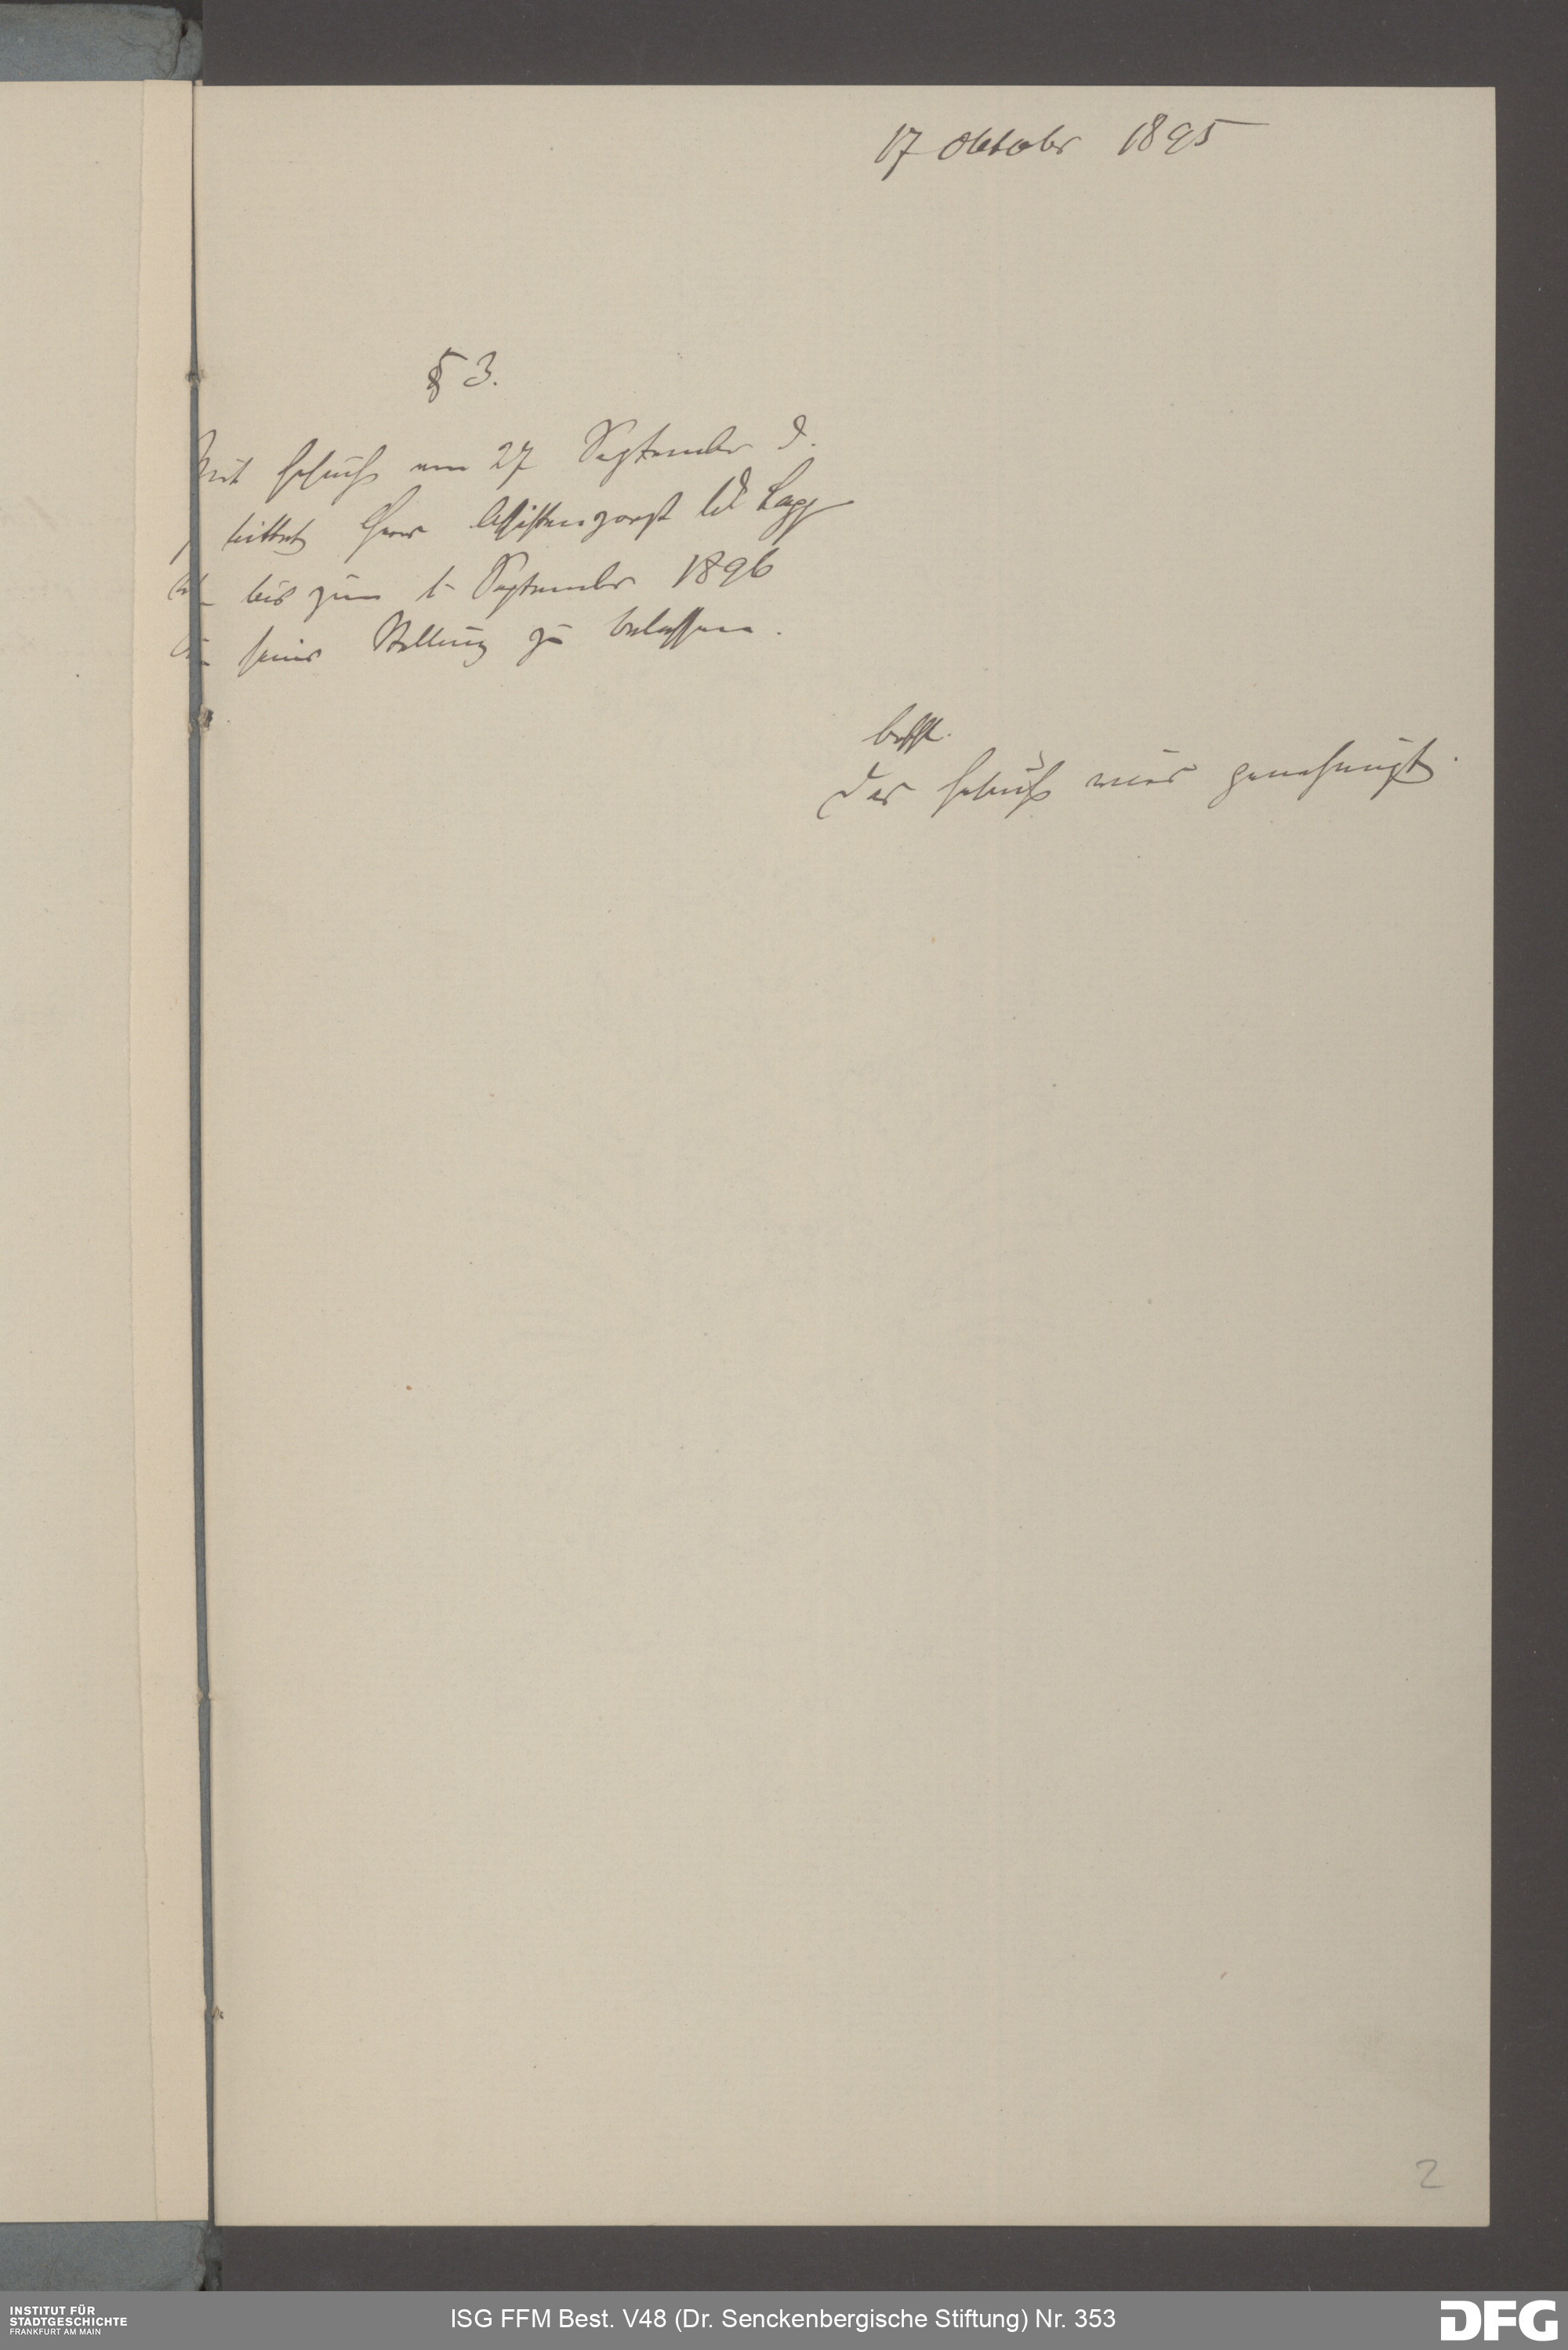 17 Oktober 1895
§ 3.
Mit Gesuch vom 27 September d.
bittet Herr Assistenzarzt Dr Lapp
bis zum 1. September 1896
in seiner Stellung zu belassen.
beschl.
Das Gesuch wird genehmigt.
2
INSTITUT FÜR
STADTGESCHICHTE
FRANKFURT AM MAIN
ISG FFM Best. V48 (Dr. Senckenbergische Stiftung) Nr. 353
DFG